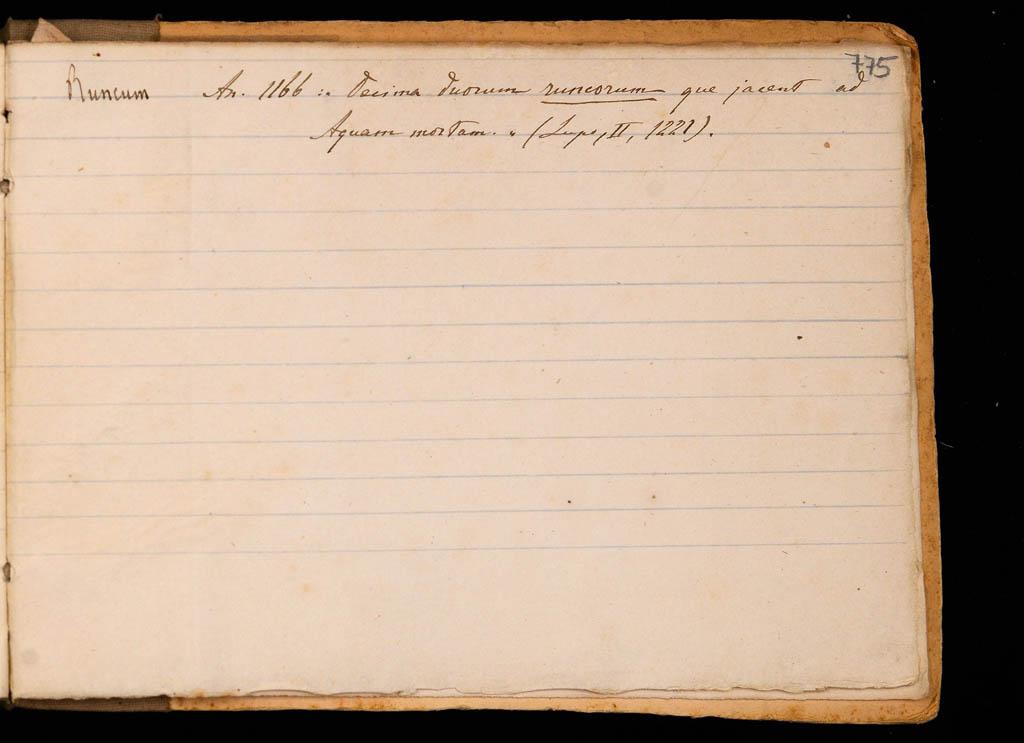 775
Runcum An. 1166 :. Decima duorum runcorum que jacent ad
Aquam mortam. " (Lupo, II, 1221).